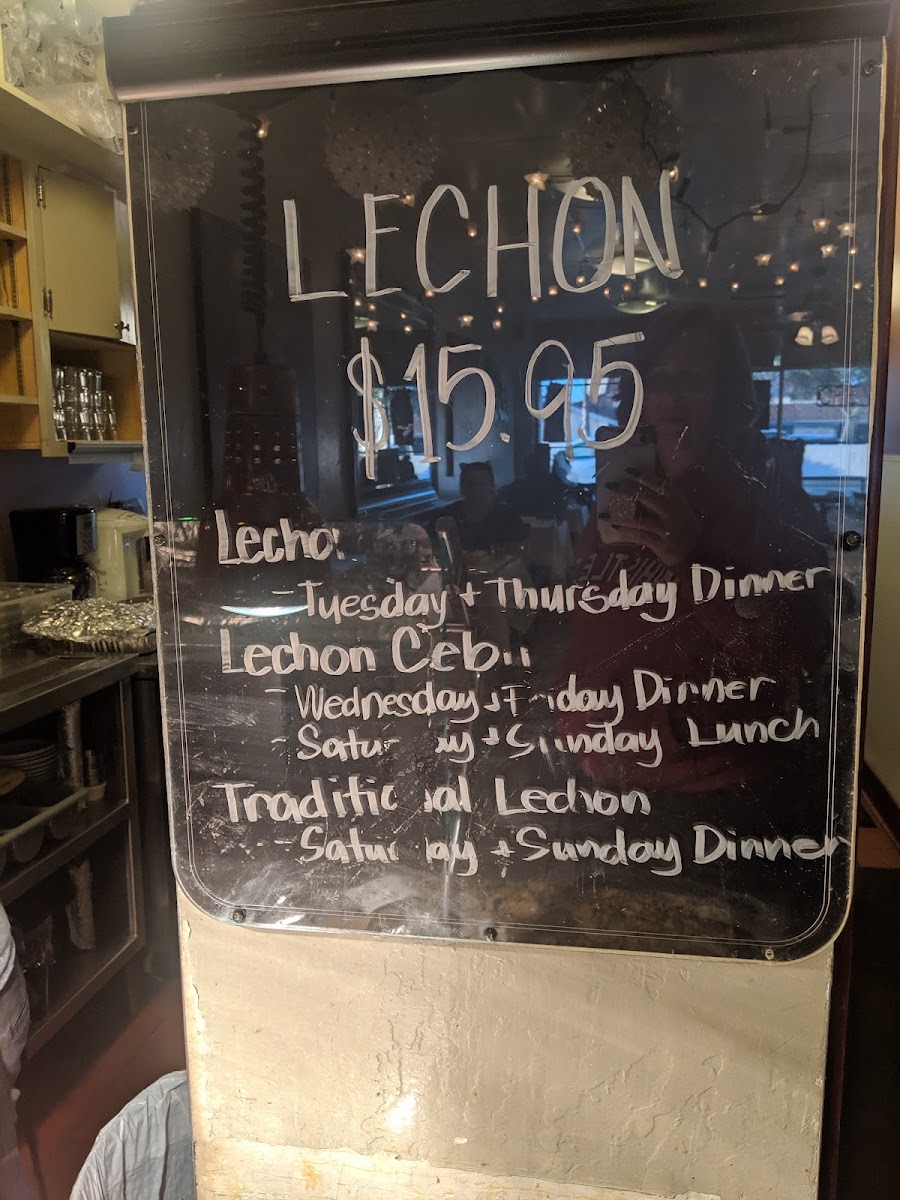 LECHON
$15.95
Lechon
- Tuesday + Thursday Dinner
Lechon Cebu
- Wednesday + Friday Dinner
- Saturday + Sunday Lunch
Traditional Lechon
- Saturday + Sunday Dinner